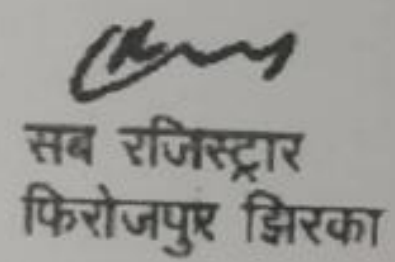 सब रजिस्ट्रार
फिरोजपुर झिरका